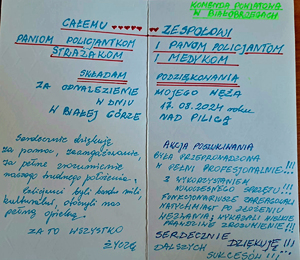 KOMENDA POWIATOWA
W BIAŁOBRZEGACH
CAŁEMU ZESPOŁOWI
PANIOM POLICJANTKOM I PANOM POLICJANTOM
STRAŻAKOM I MEDYKOM
SKŁADAM PODZIĘKOWANIA
ZA ODNALEZIENIE MOJEGO MĘŻA
W DNIU 17.08.2024 roku
W BIAŁEJ GÓRZE NAD PILICĄ
Serdecznie dziękuję
za pomoc, zaangażowanie,
za pełne zrozumienie
naszego trudnego położenia,
Policjanci byli bardzo mili
kulturalni, otoczyli nas
pełną opieką.
ZA TO WSZYSTKO
ŻYCZĘ
AKCJA POSZUKIWANIA
BYŁA PRZEPROWADZONA
W PEŁNI PROFESJONALNIE!!!
Z WYKORZYSTANIEM
NOWOCZESNEGO SPRZĘTU!!!
FUNKCJONARIUSZE ZAREAGOWALI
NATYCHMIAST PO ZŁOŻENIU
WEZWANIA, WYKAZALI WIELKIE
PRAWDZIWE ZROZUMIENIE!!!
SERDECZNIE DZIĘKUJĘ!!!
DALSZYCH SUKCESÓW!!!